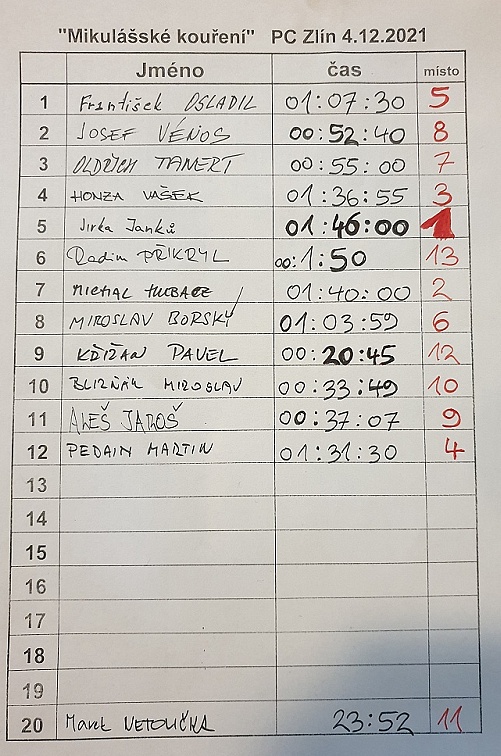 "Mikulášské kouření" PC Zlín 4.12.2021
Jméno čas místo
1 František OSLADIL 01:07:30 5
2 JOSEF VÉNOS 00:52:40 8
3 OLDŘICH TANERT 00:55:00 7
4 HONZA VAŠEK 01:36:55 3
5 Jirka Janků 01:46:00 1
6 Radim PŘIKRYL 00:1:50 13
7 MICHAL 01:40:00 2
8 MIROSLAV BORSKÝ 01:03:59 6
9 KŘIŽAN PAVEL 00:20:45 12
10 BLIZŇÁK MIROSLAV 00:33:49 10
11 ALEŠ JAROŠ 00:37:07 9
12 PEDAIN MARTIN 01:31:30 4
13
14
15
16
17
18
19
20 Marek VETOLIČKA 23:52 11